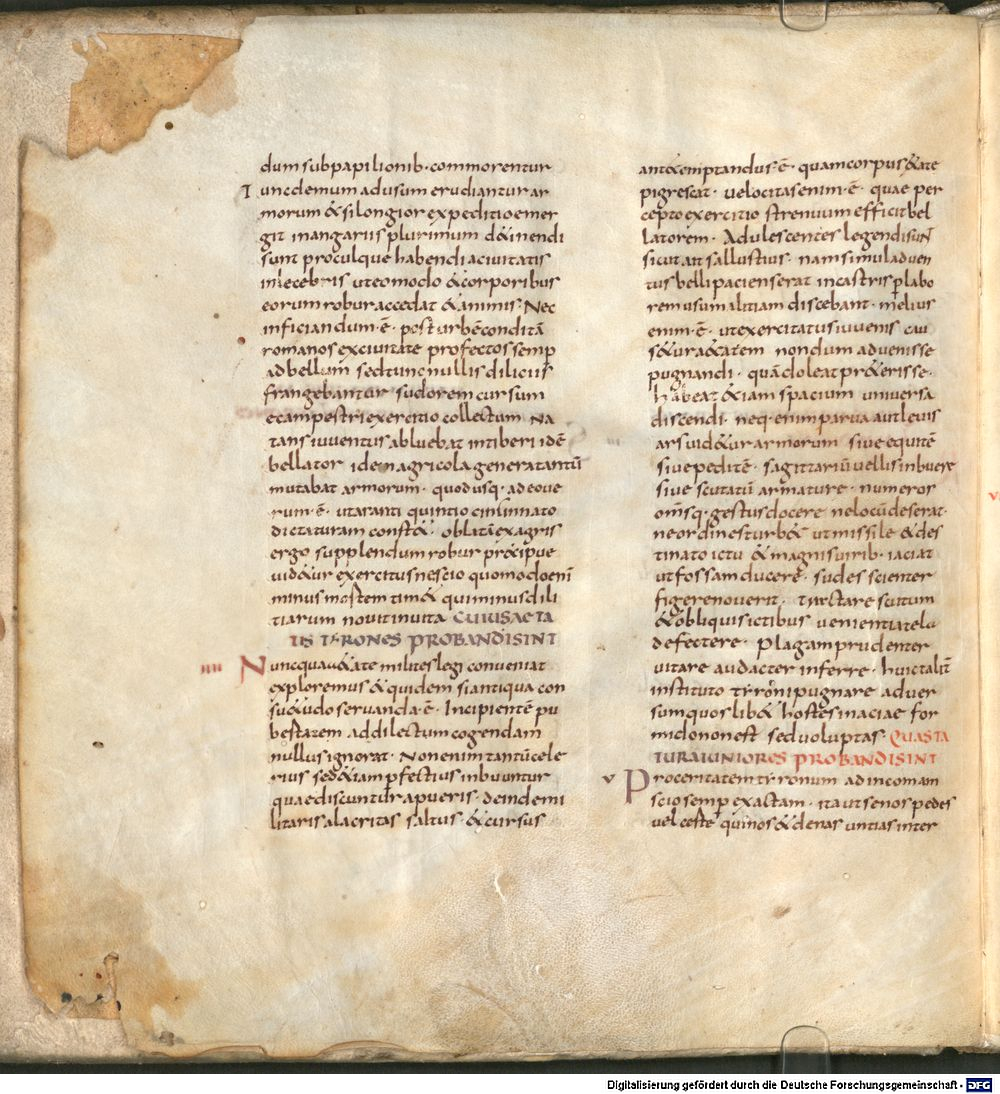 dum sub papilionib· commorentur
Tunc demum ad usum erudiantur ar
morum & si longior expeditio emer
git in angariis plurimum d&inendi
sunt procul que habendi a civitatis
inlecebris ut eo modo & corporibus
eorum robur accedat & animis· Nec
inficiandum·ē· post urbē conditā
romanos ex civitate profectos semp
ad bellum sed tunc nullis diliciis
frangebantur sudorem cursum
e campestri exercitio collectum Na
tans iuventus abluebat in tiberi idē
bellator idem agricola genera tantū
mutabat armorum· quod usq· adeo ve
rum·ē· ut aranti quintio cininnato
dictaturam const&· oblatā ex agris
ergo supplendum robur pr&cipue
vid&ur exercitus nescio quomodo enī
minus mostem tim& qui minus dili
tiarum novit in vita CUIUS AETA
TIS TIRONES PROBANDI SINT
IIII Nunc qua &ate milites legi conveniat
exploremus & quidem si antiqua con
su&udo servanda·ē· Incipientē pu
bestatem ad dilectum cogendam
nullus ignorat· Non enim tantū cele
rius sed &iam pfectius inbuuntur
quae discuntur a pueris· deinde mi
litaris alacritas saltus· & cursus
ant& emptandus·ē· quam corpus &ate
pigrescat· velocitas enim·ē· quae per
cepto exercitio strenuum efficit bel
latorem· Adulescentes legendi suNt
sicut ait sallustius· nam simul ad ven
tus belli paciens erat in castris p labo
rem usum alitiam discebant· melius
enim·ē· ut exercitatus iuvenis cau
s&ur a&atem nondum advenisse
pugnandi· quā doleat pr&erisse·
habeat &iam spacium universa
discendi· neq· enim parva aut levis
ars vid&ur armorum sive equitē
sive peditē· sagittariū vellis inbuere
sive scutatū armature· numeros
omīsq· gestus docere ne locū deserat·
ne ordines turb& ut missile & des
tinato ictu & magnis virib· iaciat
ut fossam ducere· sudes scienter
figere noverit· tractare scutum
& obliquis ictibus venientia tela
defectere· Plagam prudenter
vitare audacter inferre· huic talit
instituto tyroni pugnare adver
sum quos lib& hostes in aciae for
mido non est sed voluptas· QUA STA
TURA IUNIORES PROBANDI SINT
V Proceritatem tyronum ad incomam
scio semp exactam· ita ut senos pedes
vel certe quinos & denas untias inter
V
Digitalisierung gefördert durch die Deutsche Forschungsgemeinschaft - DFG